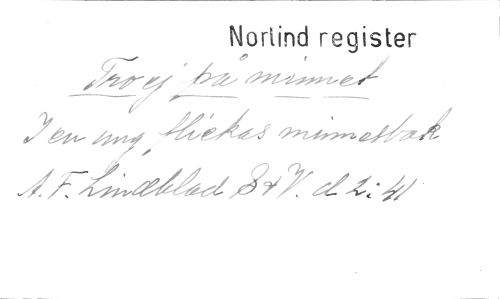 Norlind register
Tro ej på minnet
I en ung flickas minnesbok
A. F. Lindblad S & V. d 2: 41